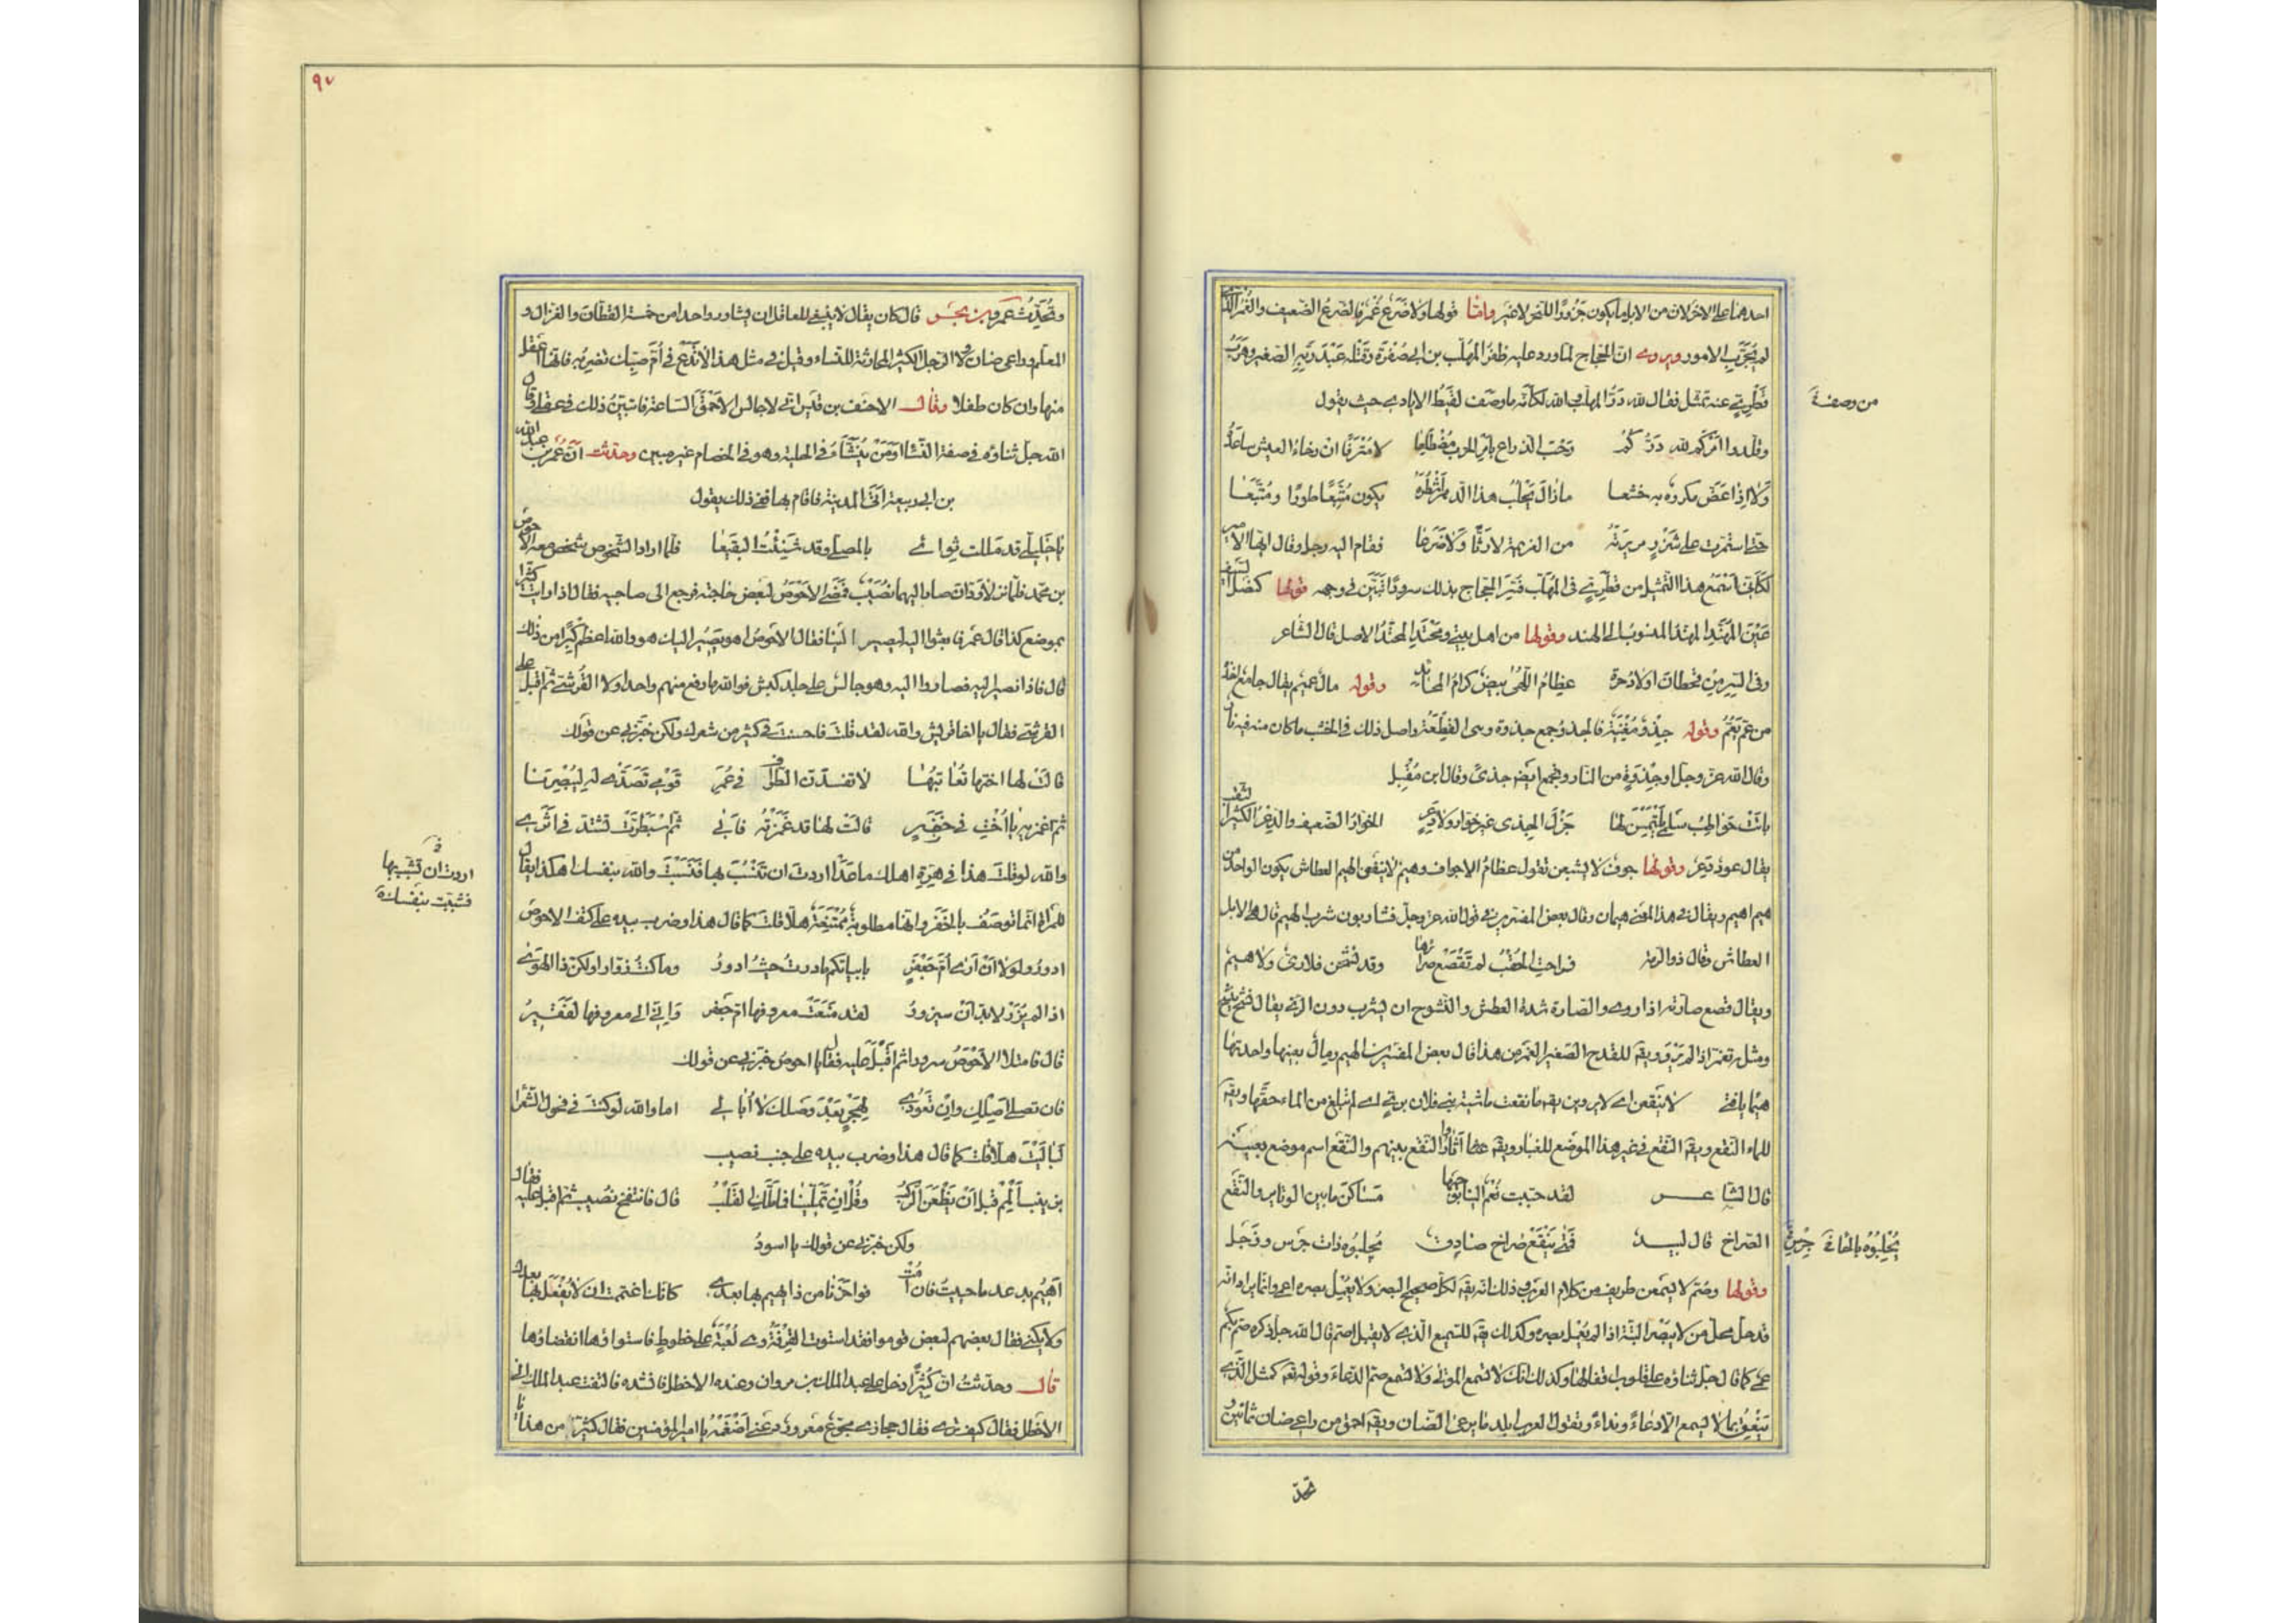 احدهما على الاخر لان من الابل ما يكون جزورا للنحر لا غير واما قولها ولا ضرع غمر فالضرع الضعيف والغمر الذي
لم يجرب الامور ويروى ان الحجاج لما ورد عليه ظفر المهلب بن ابي صفرة وقتله عبد ربه الصغير وهرب
قطري عنه تمثل فقال لله در المهلب والله لكانه ما وصف لقيط الايادي حيث يقول
من وصفة
وقلدوا امركم لله دركم رحب الذراع بامر الحرب مضطلعا لا مترفا ان رخاء العيش ساعده
ولا اذا عض مكروه به خشعا ما زال يحلب هذا الدهر اشطره يكون متبعا طورا ومتبعا
حتى استمرت على شزر مريرته من العزيمة لا رثا ولا ضرعا فقام اليه رجل وقال ايها الامير
لكاني اسمع هذا التمثيل من قطري في المهلب فسر الحجاج بذلك سرورا تبين في وجهه قولها كنصل السيف
عين المهند المهند المنسوب الى الهند وقولها من اهل بيتي ومحتدي المحتد الاصل قال الشاعر
وفي السر من قحطان اولاد حرة عظام اللهى بيض كرام المحاتد وقوله مال عميم يقال جامع اخذ
من عم يعم وقوله جذوة مغنية فالجذو جمع جذوة وهي القطعة واصل ذلك في الخشب ما كان منه فيه نار
وقال الله عز وجل او جذوة من النار وتجمع ايضا جذى وقال ابن مقبل
باتت حواطب سلمى يلتمسن لها جزل الجذى غير خوار ولا دعر الخوار الضعيف والدعر الكثير الثقب
يقال عود دعر وقولها جوف لا يشبعن تقول عظام الاجواف وهيم لا ينقعن الهيم العطاش يكون الواحد من
هيم اهيم ويقال في هذا المعنى هيمان وقال بعض المفسرين في قول الله عز وجل فشاربون شرب الهيم قال هي الابل
العطاش وقال ذو الرمة فراحت الحقب لم تقصع صرائرها وقد نشحن فلا ري ولا هيم
ويقال قصع صارته اذا روى والصارة شدة العطش والنشوح ان يشرب دون الري يقال نشح ينشح
ومثله تغمر اذا لم يرو ويق للقدح الصغير الغمر من هذا قال بعض المفسرين الهيم رمال بعينها واحدتها
هيماء يا فتى لا ينقعن اي لا يروين يق ما نقعت ماشية بني فلان بري اي لم تبلغ من الماء حقها ويق
للماء النقع ويق النقع في غير هذا الموضع للغبار ويق اثاروا النقع بينهم والنقع اسم موضع بعينه
قال الشاعر لقد حببت نعم الينا بوجهها مساكن ما بين الوتاير والنقع
الصراخ قال لبيد فمتى ينقع صراخ صادق يحلبوه ذات جرس وزجل
يحلبوه بالحاء جرس
وقولها وصم لا يسمعن طريف من كلام العرب وذلك انه يق لكل صحيح البصر ولا يعمل بصره اعمى وانما يراد انه
قد حل محل من لا يبصر البتة اذا لم يعمل بصره وكذلك يق للسميع الذي لا يقبل اصم قال الله جل ذكره صم بكم
عمي كما قال جل ثناؤه ام على قلوب اقفالها وكذلك انك لا تسمع الموتى ولا تسمع الصم الدعاء وقوله تعه كمثل الذي
ينعق بما لا يسمع الا دعاء ونداء وتقول العرب ابلد ما يرعى الضان ويق احمق من راعي ضان ثمانين
٩٧
وتحدث عمرو بن بحر قال كان يقال لا ينبغي للعاقل ان يشاور واحدا من خمسة القطان والغزال و
المعلم وراعي ضان ولا الرجل الكثير المحادثة للنساء وقيل في مثل هذا لا تدع ام صبيك تضربه فانه اعقل
منها وان كان طفلا وقال الاحنف بن قيس اني لاجالس الاحمق الساعة فاتبين ذلك في عقلي وقال
الله جل ثناؤه في صفة النساء او من ينشأ في الحلية وهو في الخصام غير مبين وحدثت ان عمر بن عبد الله
بن ابي ربيعة اتى المدينة فاقام بها ففي ذلك يقول
يا خليلي قد مللت ثوائي بالمصلى وقد شنئت البقيعا فلما اراد الشخوص شخص معه الاحوص
بن محمد فلما نزلا ودان صار اليهما نصيب فمضى الاحوص لبعض حاجته فرجع الى صاحبيه فقال اني رايت كثيرا
بموضع كذا قال عمر فابعثوا اليه ليصير الينا فقال الاحوص اهو يصير اليك هو والله اعظم كبرا من ذلك
قال فاذا نصير اليه فصاروا اليه وهو جالس على جلد كبش فوالله ما رفع منهم واحدا ولا القرشي ثم اقبل على
القرشي فقال يا اخا قريش والله لقد قلت فاحسنت في كثير من شعرك ولكن خبرني عن قولك
قالت لها اختها تعاتبها لا تفسدن الطواف في عمر قومي تصدي له ليبصرنا
ثم اغمزيه يا اخت في خفر قالت لها قد غمزته فابى ثم اسبطرت تشتد في اثري
والله لو قلت هذا في هرة اهلك ما عدا اردت ان تنسب بها فنسبت والله بنفسك اهكذا يقال
اردت ان تشبب بها
فشببت بنفسك
للمراة انما توصف بالخفر وانها مطلوبة ممتنعة هلا قلت كما قال هذا وضرب بيده على كتف الاحوص
ادور ولولا ان ارى ام جعفر بابياتكم ما درت حيث ادور وما كنت زوارا ولكن ذا الهوى
اذا لم يزر لا بد ان سيزور لقد منعت معروفها ام جعفر واني الى معروفها لفقير
قال فامتلا الاحوص سرورا ثم اقبل عليه فقال يا احوص خبرني عن قولك
فان تصلي اصلك وان تعودي لهجر بعد وصلك لا ابالي اما والله لو كنت من فحول الشعراء
لباليت هلا قلت كما قال هذا وضرب بيده على جنب نصيب
بزينب المم قبل ان يظعن الركب وقل ان تملينا فما ملك القلب قال فانتفخ نصيب ثم اقبل عليه فقال
ولكن خبرني عن قولك يا اسود
اهيم بدعد ما حييت فان امت فواحزنا من ذا يهيم بها بعدي كانك اغتممت ان لا يفعل بها بعدك
ولا يكني فقال بعضهم لبعض قوموا فقد استوت القرقة وهي لعبة على خطوط فاستواؤها انقضاؤها
قال وحدثت ان كثيرا دخل على عبد الملك بن مروان وعنده الاخطل فانشده فالتفت عبد الملك الى
الاخطل فقال كيف ترى فقال حجازي مجوع مقرور دعني اضغمه يا امير المؤمنين فقال كثير من هذا يا